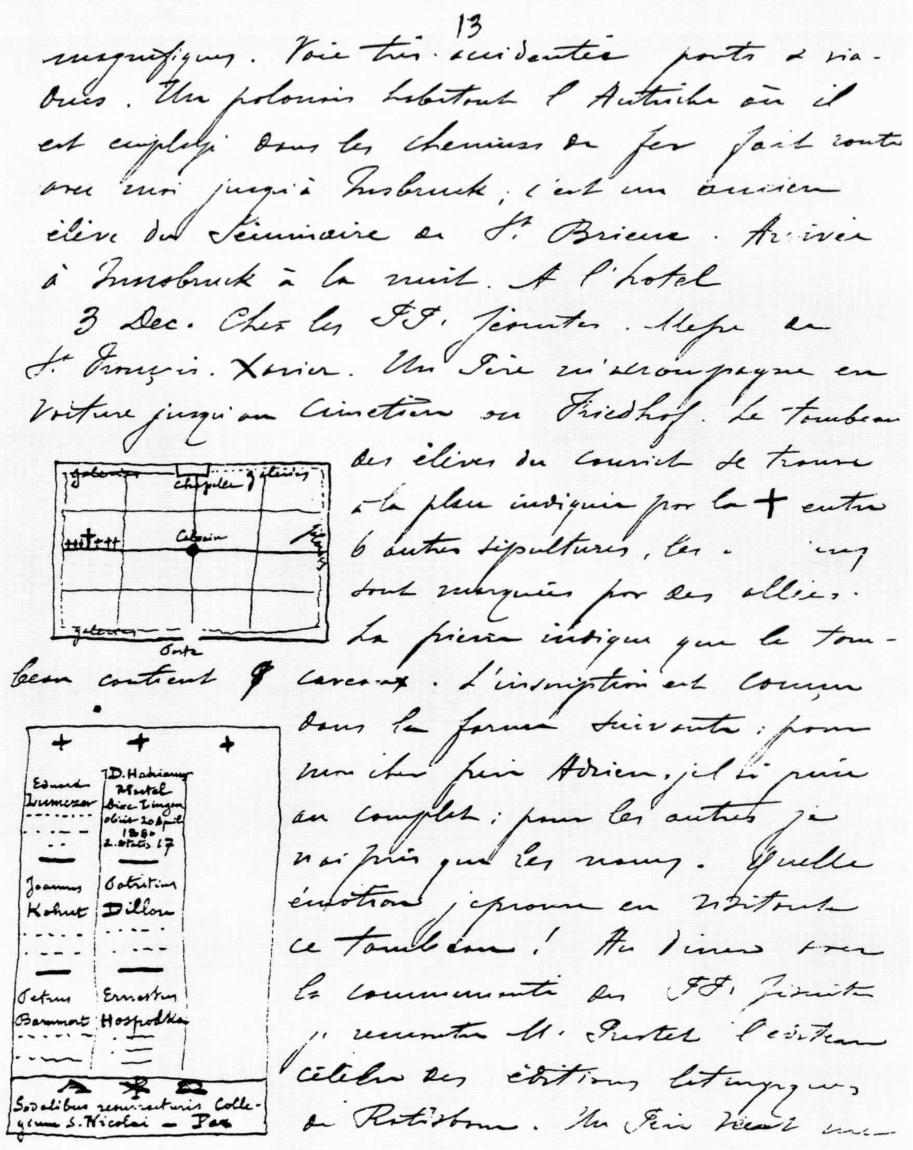 13
magnifiques. Voie très accidentée ponts & via-
ducs. Un polonais habitant l'Autriche où il
est employé dans les chemins de fer fait route
avec moi jusqu'à Insbruck; c'est un ancien
élève du Séminaire de St. Brieuc. Arrivée
à Innsbruck à la nuit. A l'hotel
3 Dec. Chez les PP. Jésuites. Messe de
St. François. Xavier. Un Père m'accompagne en
voiture jusqu'au Cimetière ou Friedhof. Le tombeau
des élèves du convict se trouve
à la place indiquée par la + entre
6 autres sépultures, les
sont marquées par des allées.
La pierre indique que le tom-
beau contient 9 caveaux. L'inscription est comme
dans la forme suivante: pour
mon cher frère Adrien, je l'ai prise
au complet: pour les autres je
n'ai pris que les noms. Quelle
émotion j'éprouve en visitant
ce tombeau! Au diner avec
la communauté des PP. Jésuites
je rencontre M. Pustet l'éditeur
célèbre des éditions liturgiques
de Ratisbonne. Un Père vient me
galeries Chapelle galeries
Calvaire
galeries
Porte
+ + +
D. Hadrianus
diœc Lingon
obiit 20 April
1880
Ætatis 17
Joannes
Kohut
Patritius
Dillon
Petrus
Ernestus
Hospodka
A ☧ Ω
Sodalibus resurrecturis Colle-
gium S. Nicolai — Pax